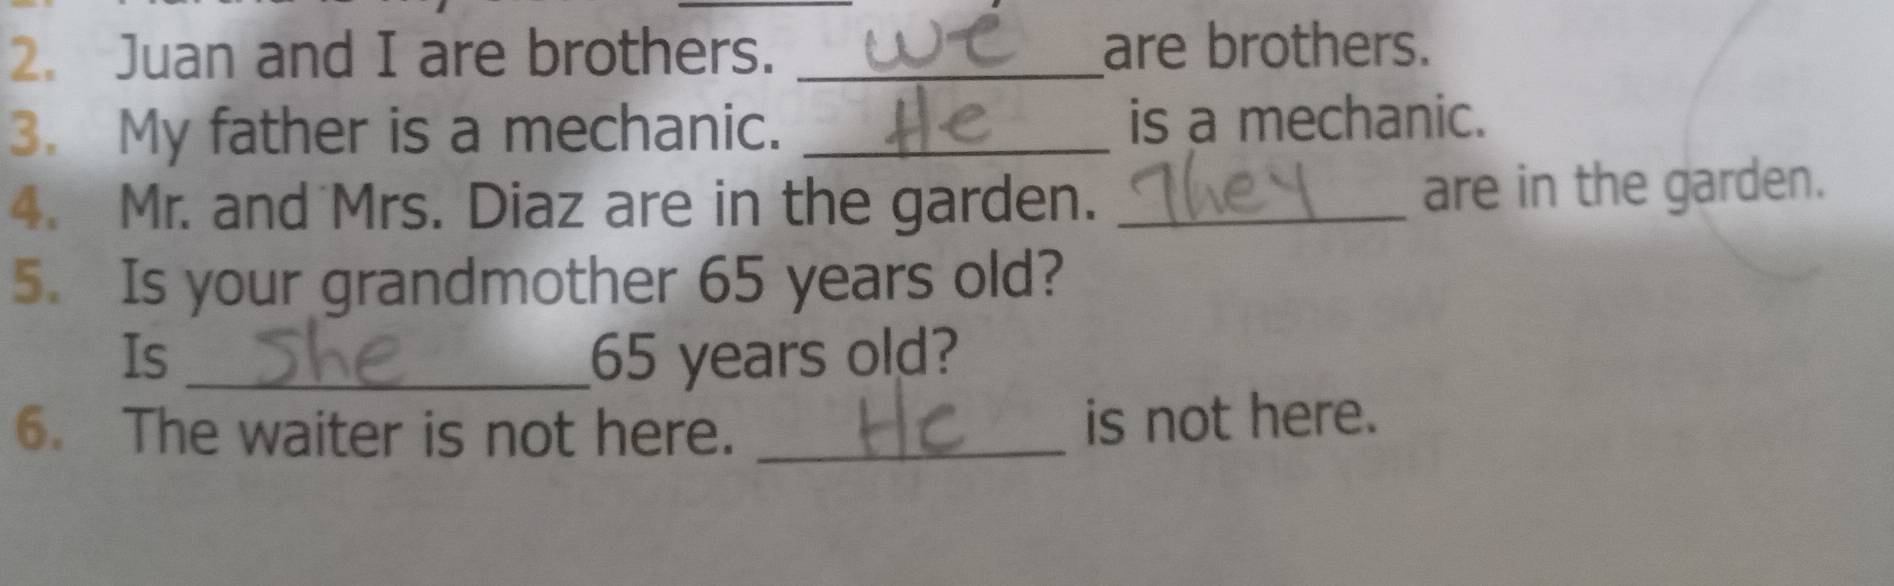 2. Juan and I are brothers. we are brothers.
3. My father is a mechanic. He is a mechanic.
4. Mr. and Mrs. Diaz are in the garden. They are in the garden.
5. Is your grandmother 65 years old?
Is she 65 years old?
6. The waiter is not here. He is not here.